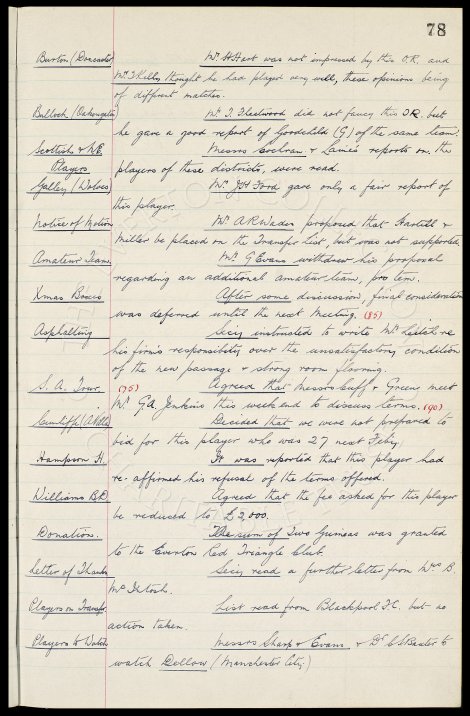 78
Burton (Doncaster) Mr. H Hart was not impressed by this O.R. and
Mr. J Kelly thought he had played very well, these opinions being
of different matches.
Bulloch (Oakengates) Mr. T. Fleetwood did not fancy this I.R. but
he gave a good report of Goodchild (G) of the same team.
Scottish & N.E. Players Messrs Cochran & reports on the
players of these districts, were read.
Galley (Wolves) Mr. J.H Ford gave only a fair report of
this player.
Notice of Motion Mr. A R Waden proposed that Hartill &
Miller be placed on the Transfer List, but was not supported.
Amateur Team Mr. G Evans withdrew his proposal
regarding an additional amateur team, pro tem.
Xmas Boxes After some discussion, final consideration
was deferred until the next Meeting. (85)
Asphalting Secy instructed to write Mr. Leitch re
his firm's responsibility over the unsatisfactory condition
of the new passage & strong room flooring.
S. A. Tour. (75) Agreed that Messrs Cuff & Green meet
Mr. G.A. Jenkins this weekend to discuss terms. (90)
Cunliffe (A.V) Decided that we were not prepared to
bid for this player who was 27 next Feby.
Hampson H. It was reported that this player had
re-affirmed his refusal of the terms offered.
Williams B.D. Agreed that the fee asked for this player
be reduced to £2,000.
Donation. The sum of Two Guineas was granted
to the Everton Red Triangle Club.
Letter of Thanks Secy read a further letter from Mrs B.
McIntosh.
Players on Transfer List read from Blackpool F.C. but no
action taken.
Players to Watch Messrs Sharp & Evans, & Dr. C.S Baxter to
watch Dellow (Manchester City)